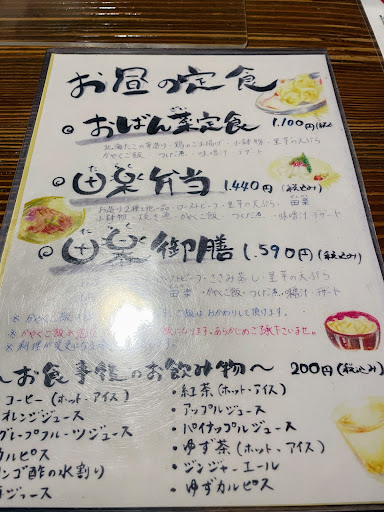 お昼の定食
おばん菜定食 1,100円(税込
北海たこの唐揚・鶏のごま揚げ・小鉢物・里芋の天ぷら
かやくご飯・つくだ煮・味噌汁・デザート
田楽弁当 1,440円(税込み)
お造り2種と他一品・ローストビーフ・里芋の天ぷら・田楽
小鉢物・焼き魚・かやくご飯・つくだ煮・味噌汁・デザート
田楽御膳 1,590円(税込み)
ローストビーフ・ささみ蒸し・里芋の天ぷら
田楽・かやくご飯・つくだ煮・味噌汁・デザート
※かやくご飯 ご飯はおかわりして頂けます。
※かやくご飯 になります。あらかじめご了承下さいませ。
※料理が変更になる
〜お食事後のお飲み物〜 200円(税込み)
コーヒー(ホット・アイス)
オレンジジュース
グレープフルーツジュース
カルピス
リンゴ酢の水割り
ジュース
・紅茶(ホット・アイス)
・アップルジュース
・パイナップルジュース
・ゆず茶(ホット・アイス)
・ジンジャーエール
・ゆずカルピス